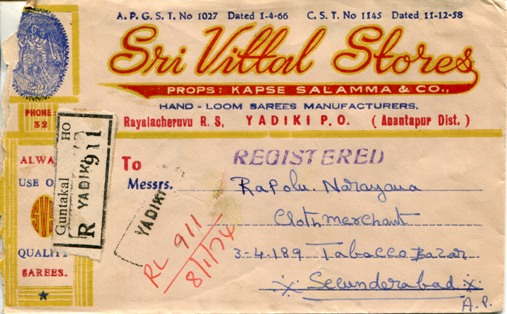 A. P. G. S. T. No 1027 Dated 1-4-66 C. S. T. No 1145 Dated 11-12-58
Sri Vittal Stores
PROPS: KAPSE SALAMMA & CO.,
HAND - LOOM SAREES MANUFACTURERS,
Rayalacheruvu R. S. YADIKI P.O. (Anantapur Dist.)
PHONE:
52
ALWA
USE O
QUALITY
SAREES.
Guntakal HO
R YADIKI 911
YADIKI
REGISTERED
To
Messrs. Rapolu. Narayana
Cloth merchant
3-4-189 Tabacco Bazar
Secunderabad
A.P.
RL 911
8/1/74